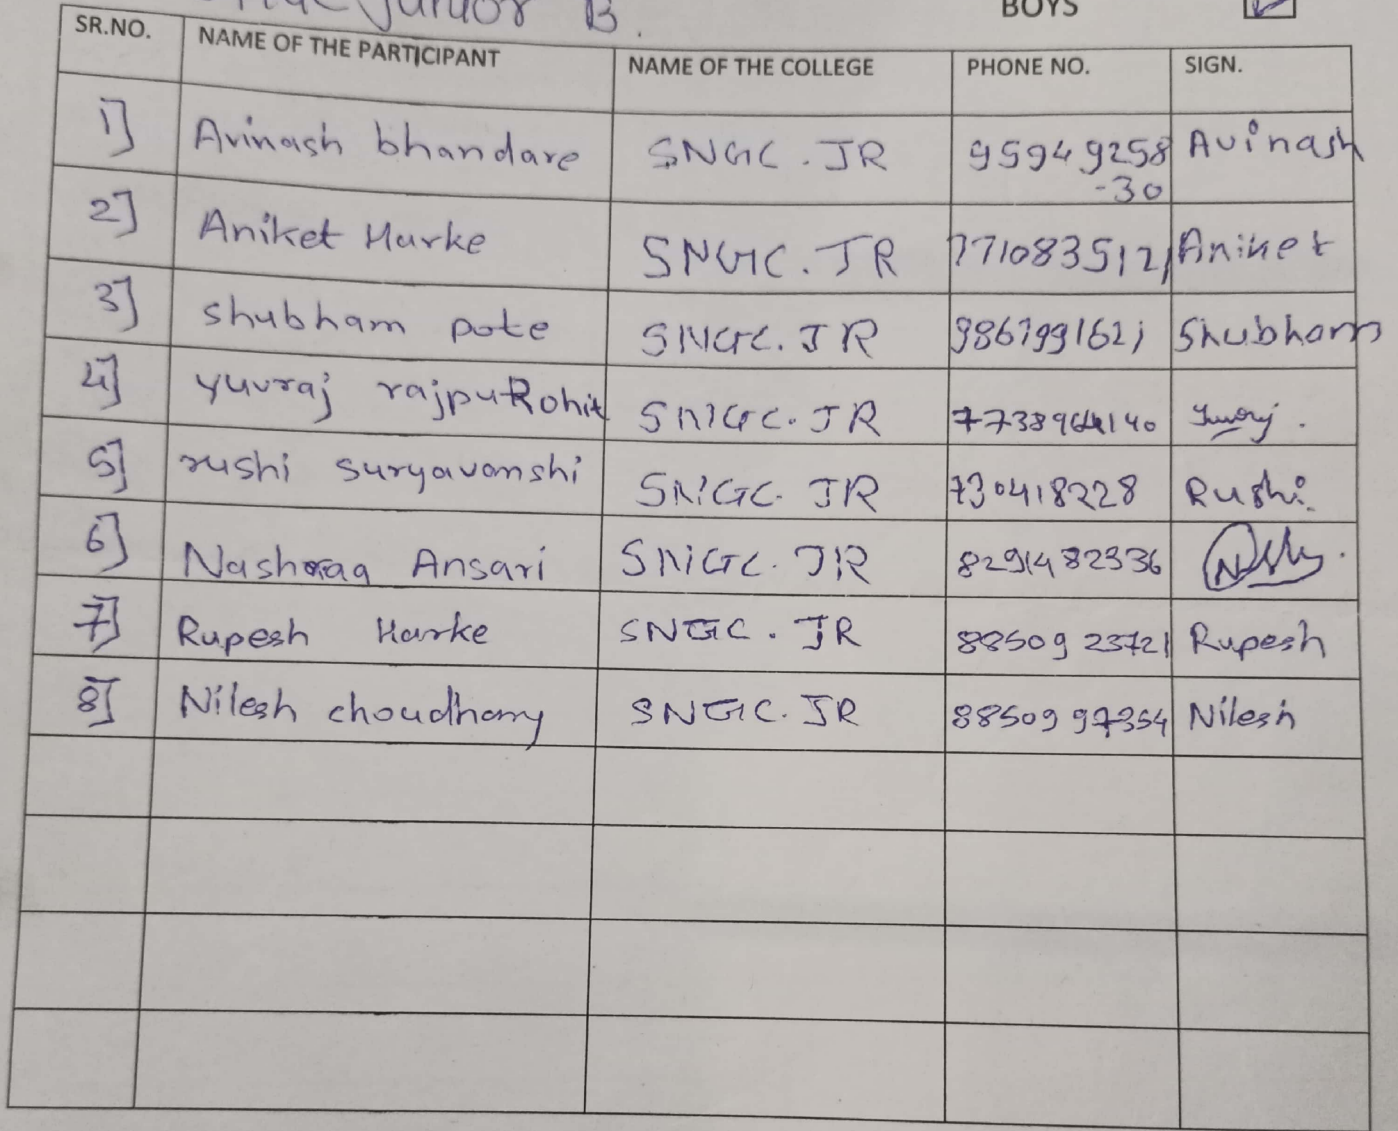 Junior B.
BOYS
SR.NO. NAME OF THE PARTICIPANT NAME OF THE COLLEGE PHONE NO. SIGN.
1] Avinash bhandare SNGC.JR 95949258 Avinash
-30
2] Aniket Harke SNGC.JR 7710835121 Aniket
3] shubham pote SNGC.JR 9867991621 Shubham
4] yuvraj rajpurohit SNGC.JR 7738964140 Yuvraj.
5] rushi suryavanshi SNGC.JR 730418228 Rushi.
6] Ansari SNGC.JR 8291482336
7] Rupesh Harke SNGC.JR 88509 23721 Rupesh
8] Nilesh choudhary SNGC.JR 88509 97354 Nilesh